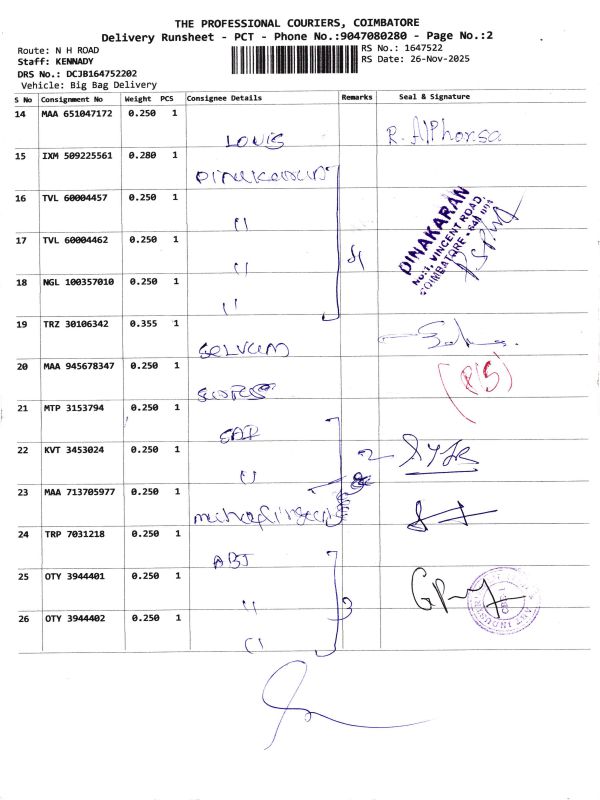 THE PROFESSIONAL COURIERS, COIMBATORE
Delivery Runsheet - PCT - Phone No.:9047080280 - Page No.:2
Route: N H ROAD
RS No.: 1647522
Staff: KENNADY
RS Date: 26-Nov-2025
DRS No.: DCJB164752202
Vehicle: Big Bag Delivery
S No Consignment No Weight PCS Consignee Details Remarks Seal & Signature
14 MAA 651047172 0.250 1
LOUIS R. Alphonsa
15 IXM 509225561 0.280 1
16 TVL 60004457 0.250 1
"
17 TVL 60004462 0.250 1
" 4
18 NGL 100357010 0.250 1
"
DINAKARAN
VINCENT ROAD,
COIMBATORE - 641 001
19 TRZ 30106342 0.355 1
SELVAM
20 MAA 945678347 0.250 1
21 MTP 3153794 0.250 1
22 KVT 3453024 0.250 1
" 2
23 MAA 713705977 0.250 1
24 TRP 7031218 0.250 1
25 OTY 3944401 0.250 1
" 3
26 OTY 3944402 0.250 1
"